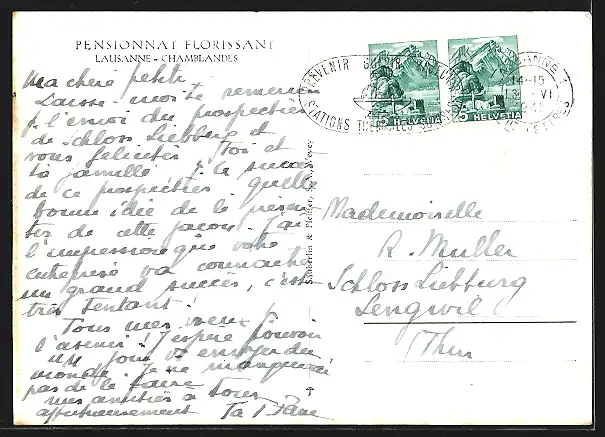 PENSIONNAT FLORISSANT
LAUSANNE - CHAMBLANDES
Ma chère petite
Laisse-moi te remercier
p. l'envoi du prospectus
de Schloss Liebburg et
vous féliciter toi et
ta famille p. le succès
de ce prospectus quelle
bonne idée de le présen-
ter de cette façon. J'ai
l'impression que votre
entreprise va connaître
un grand succès, c'est
très tentant!
Tous mes voeux p.
l'avenir! J'espère pouvoir
un jour vs envoyer du
monde. Je ne manquerai
pas de le faire
mes amitiés à tous
affectueusement Ta
PREVENIR GUERIR
STATIONS THERMALES
LAUSANNE 1
14-15
VI
HELVETIA
HELVETIA
Mademoiselle
R. Muller
Schloss Liebburg
Lengwil
(Thur